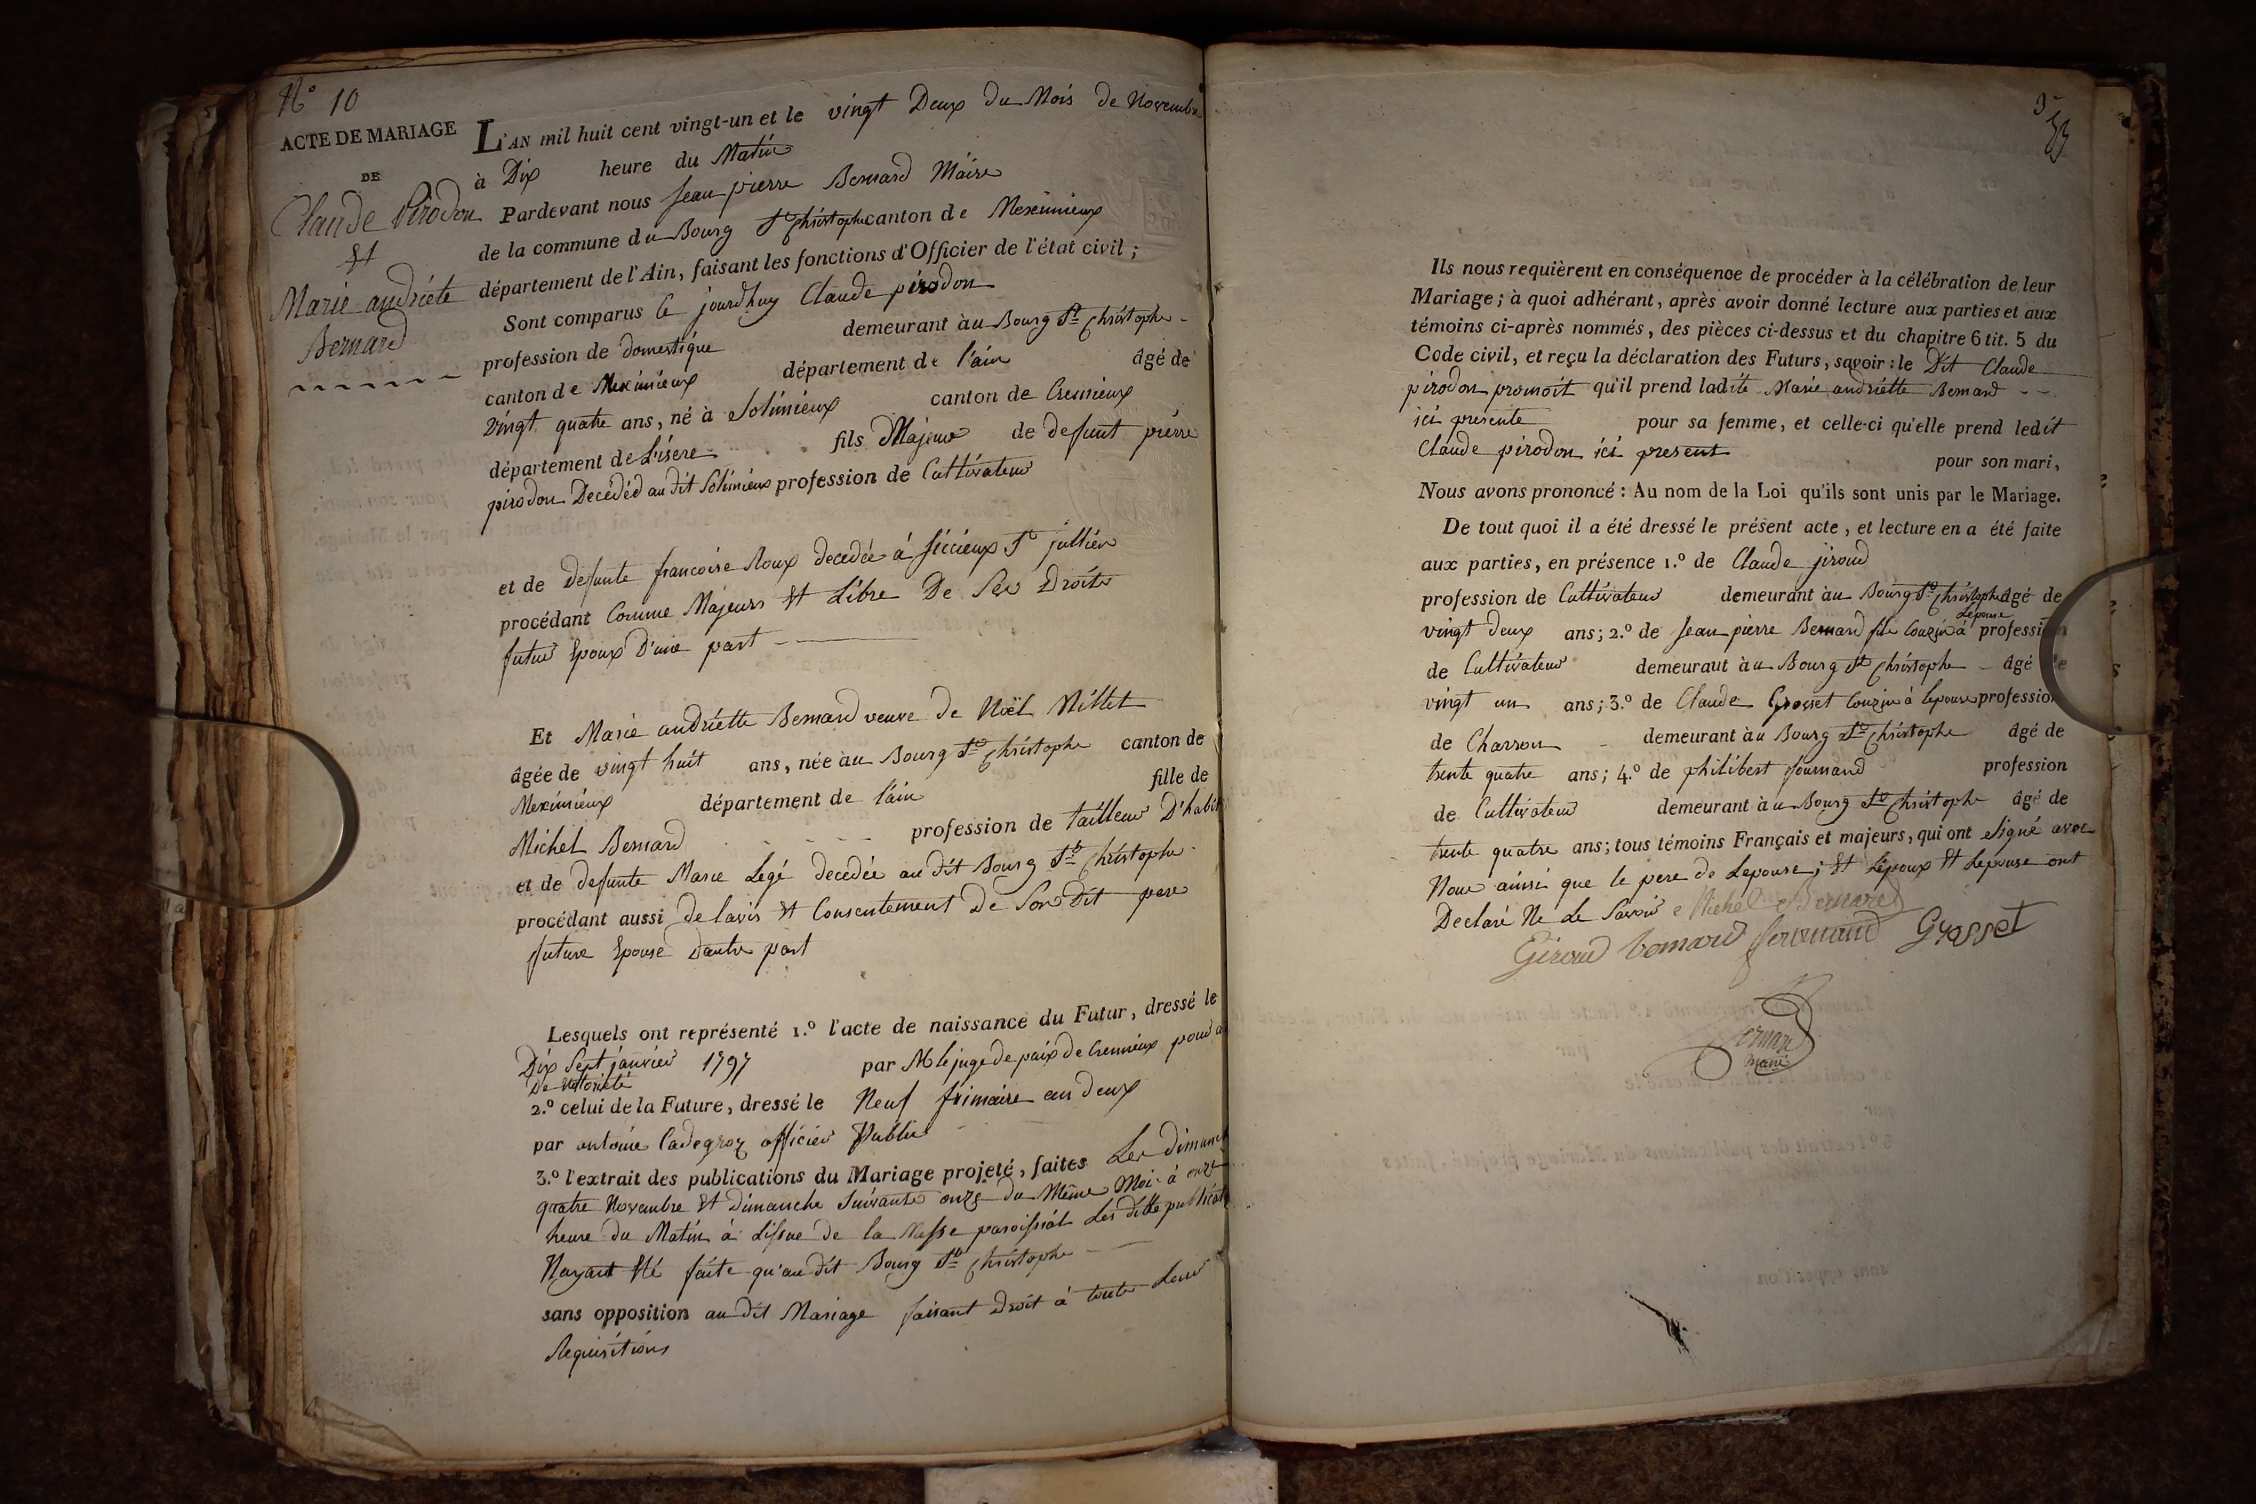 N° 10
ACTE DE MARIAGE
DE
Claude Pirodon
Et
Marie andriéte
Bernard
L'AN mil huit cent vingt-un et le vingt Deux du Mois de Novembre
à Dix heure du Matin
Pardevant nous Jean pierre Bernard Maire
de la commune du Bourg St Christophe canton de Meximieux
département de l'Ain, faisant les fonctions d'Officier de l'état civil;
Sont comparus Ce jourdhuy Claude pirodon
profession de domestique demeurant àu Bourg St Christophe
canton de Meximieux département de l'ain âgé de
vingt quatre ans, né à Solimieux canton de Cremieux
département de L'isere fils Majeur de defunt pierre
pirodon Decédéd au dit Solimieux profession de Cultivateur
et de defunte francoise Roux decedée á Siccieux St jullien
procédant Comme Majeurs Et Libre De Ses Droits
futur Epoux D'une part
Et Marie andriette Bernard veuve de Noël Millet
âgée de vingt huit ans, née àu Bourg St Christophe canton de
Meximieux département de l'ain fille de
Michel Bernard profession de tailleur D'habit
et de defunte Marie Legé decedée au dit Bourg St Christophe
procédant aussi De lavis Et Consentement De Son Dit pere
future Epouse Dautre part
Lesquels ont représenté 1.° l'acte de naissance du Futur, dressé le
Dix Sept janvier 1797 par M le juge de paix de Cremieux pour a
De Notorieté
2.° celui de la Future, dressé le Neuf frimaire an deux
par antoine Cadegroz officier Public
3.° l'extrait des publications du Mariage projeté, faites Les dimanch
quatre Novembre Et Dimanche Suivante onze du Même Moi à onze
heure du Matin á Lissue de la Messe paroissial Les ditte publicat
Nayant Eté faite qu'au dit Bourg St Christophe
sans opposition au dit Mariage faisant Droit á toute Leur
Requisitions
Ils nous requièrent en conséquence de procéder à la célébration de leur
Mariage; à quoi adhérant, après avoir donné lecture aux parties et aux
témoins ci-après nommés, des pièces ci-dessus et du chapitre 6 tit. 5 du
Code civil, et reçu la déclaration des Futurs, savoir: le Dit Claude
pirodon promoit qu'il prend ladite Marie andriétte Bernard
ici presente pour sa femme, et celle-ci qu'elle prend ledit
Claude pirodon ici present pour son mari,
Nous avons prononcé: Au nom de la Loi qu'ils sont unis par le Mariage.
De tout quoi il a été dressé le présent acte, et lecture en a été faite
aux parties, en présence 1.° de Claude jiroud
profession de Cultivateur demeurant àu Bourg St Christophe âgé de
vingt deux ans; 2.° de Jean pierre Bernard fils Couzin á Lepouse profession
de Cultivateur demeurant àu Bourg St Christophe âgé de
vingt un ans; 3.° de Claude Grosset Couzin à lepouse profession
de Charron demeurant àu Bourg St Christophe âgé de
trente quatre ans; 4.° de philibert fournand profession
de Cultivateur demeurant àu Bourg St Christophe âgé de
trente quatre ans; tous témoins Français et majeurs, qui ont Signé avec
Nous ainsi que le pere de Lepouse; Et Lépoux Et Lepouse ont
Declaré Ne Le Savoir Michel Bernard
Giroud bernard Grosset
Bernard
maire